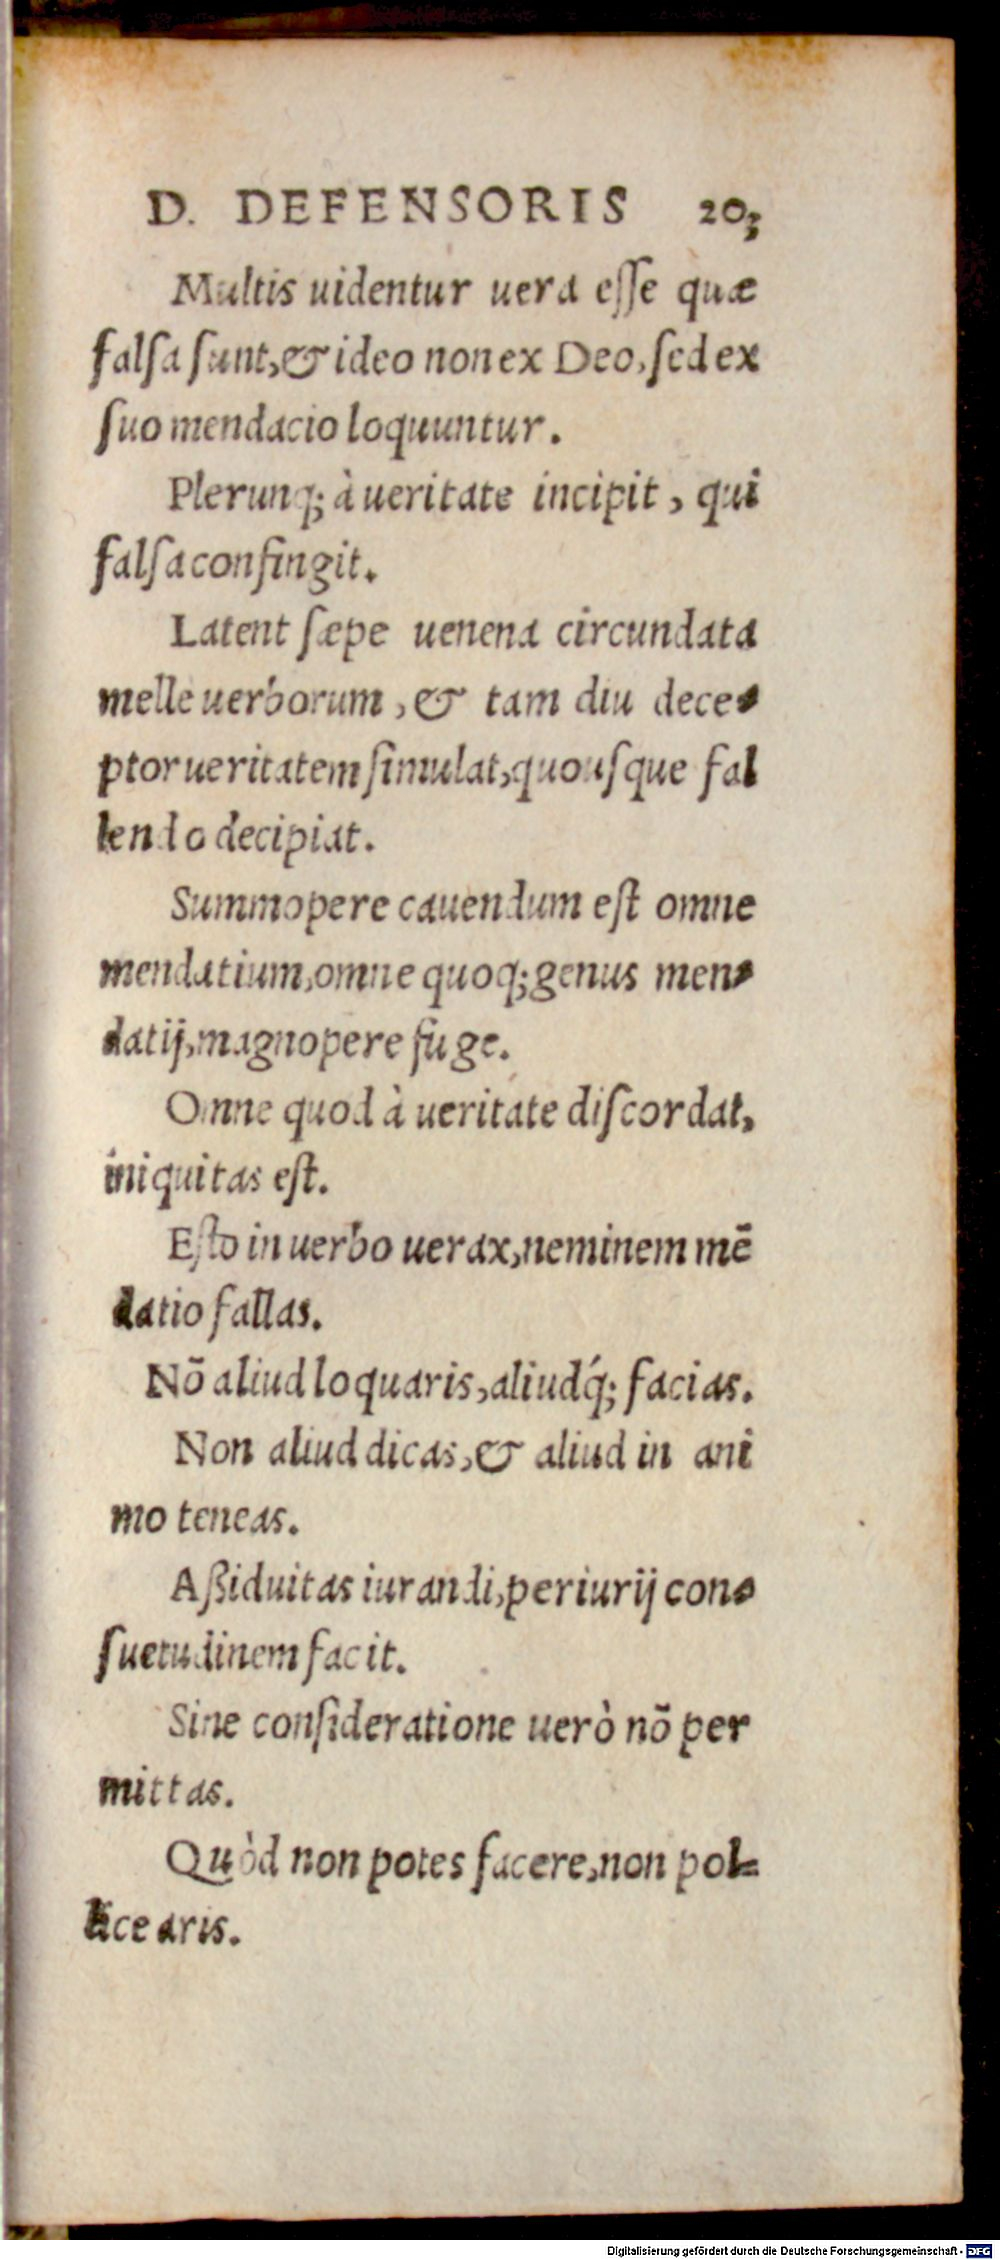 D. DEFENSORIS 203
Multis uidentur uera eſſe quæ
falſa ſunt,& ideo non ex Deo, ſed ex
ſuo mendacio loquuntur.
Plerunq; à ueritate incipit, qui
falſa confingit.
Latent ſæpe uenena circundata
melle uerborum, & tam diu dece-
ptor ueritatem ſimulat, quouſque fal
lendo decipiat.
Summopere cauendum eſt omne
mendatium, omne quoq; genus men-
datij, magnopere fuge.
Omne quod à ueritate diſcordat,
iniquitas eſt.
Eſto in uerbo uerax, neminem mē
datio fallas.
Nō aliud loquaris, aliudq́; facias.
Non aliud dicas, & aliud in ani
mo teneas.
Aßiduitas iurandi, periurij con-
ſuetudinem facit.
Sine conſideratione uerò nō per
mittas.
Quòd non potes facere, non pol-
licearis.
Digitalisierung gefördert durch die Deutsche Forschungsgemeinschaft - DFG